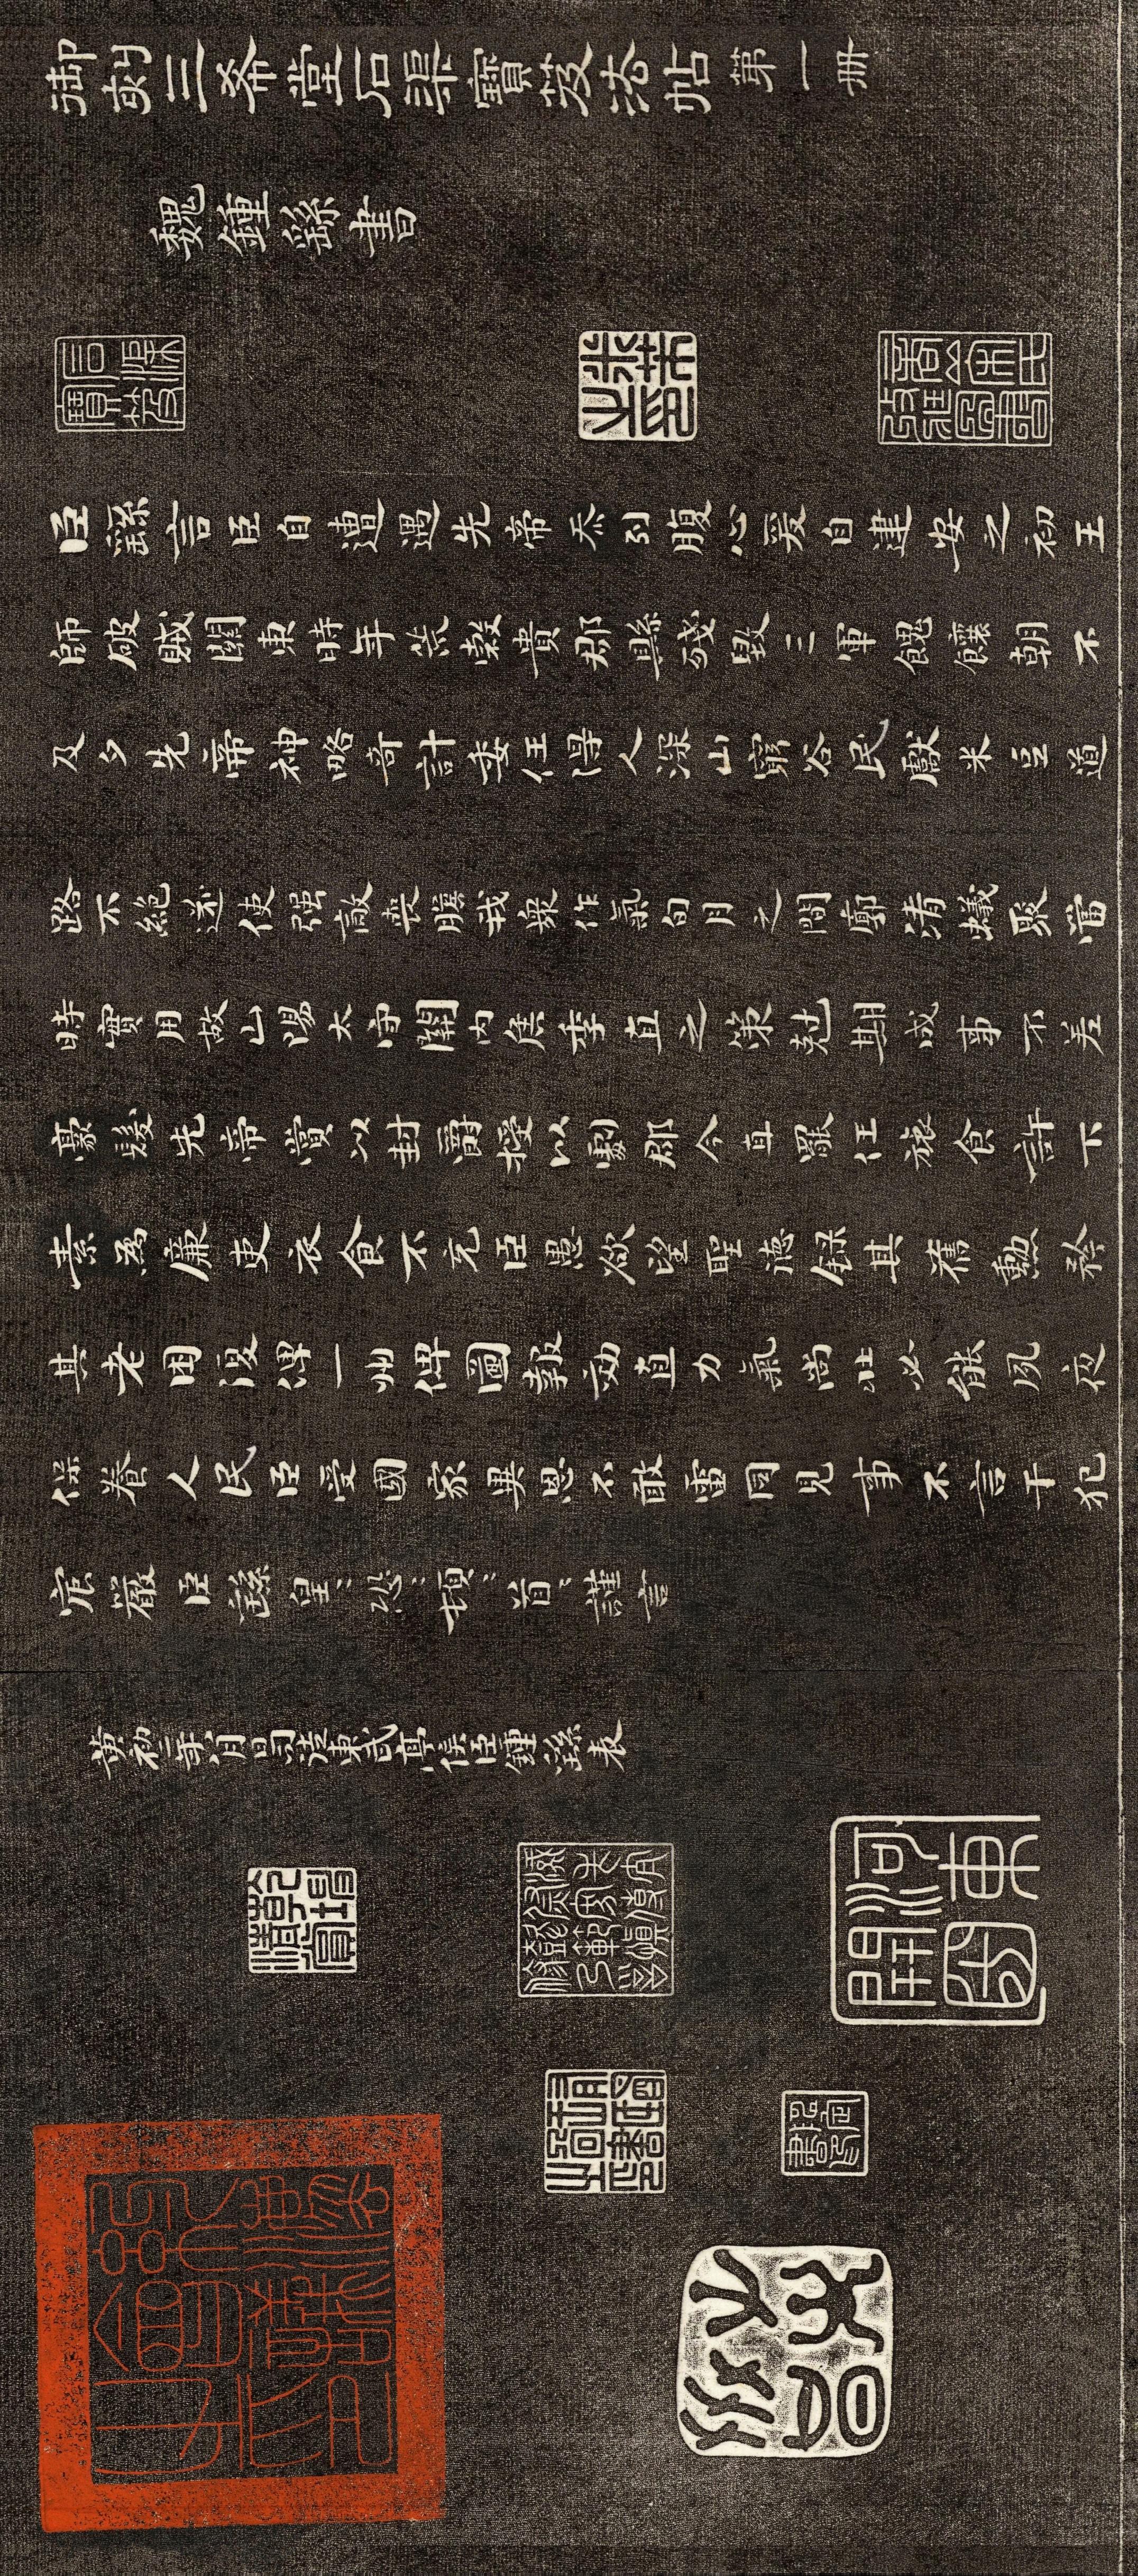 御刻三希堂石渠寶笈法帖第一冊
魏鍾繇書
石渠寶笈
臣繇言臣自遭遇先帝忝列腹心爰自建安之初王
師破賊關東時年荒穀貴郡縣殘毀三軍餽饟朝不
及夕先帝神略奇計委任得人深山窮谷民獻米豆道
路不絕遂使强敵喪膽我衆作氣旬月之間廓清蟻聚當
時實用故山陽太守關內侯季直之策剋期成事不差
豪髮先帝賞以封爵授以劇郡今直罷任旅食許下
素爲廉吏衣食不充臣愚欲望聖德錄其舊勳矜
其老困復俾一州俾圖報効直力氣尚壯必能夙夜
保養人民臣受國家異恩不敢雷同見事不言干犯
宸嚴臣繇皇〻恐〻頓〻首〻謹言
黃初二年八月日司徒東武亭侯臣鍾繇表